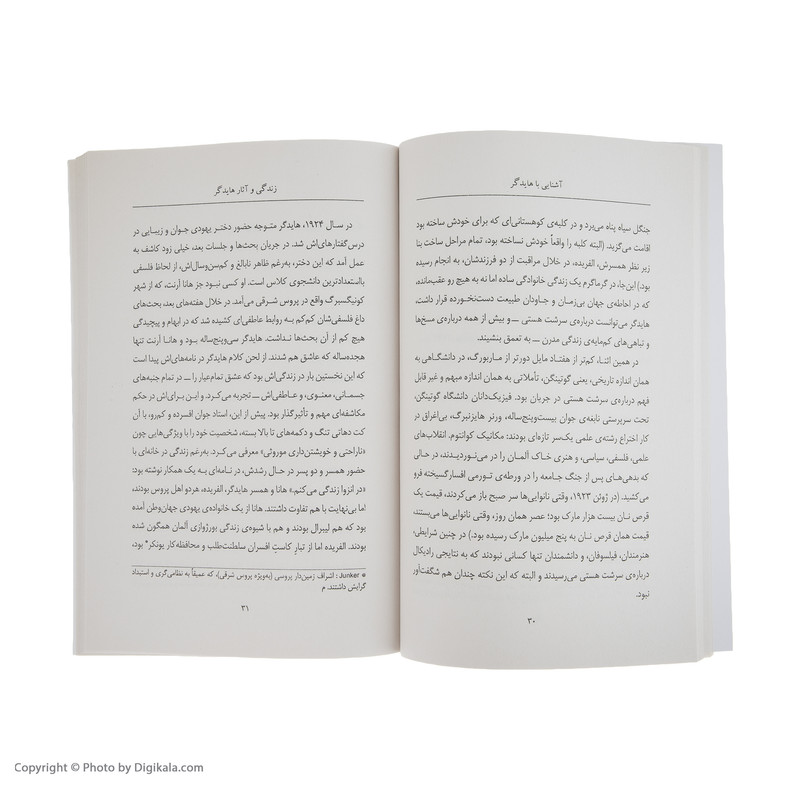 آشنایی با هایدگر
جنگل سیاه پناه می‌برد و در کلبه‌ی کوهستانی‌ای که برای خودش ساخته بود
اقامت می‌گزید. (البته کلبه را واقعاً خودش نساخته بود، تمام مراحل ساخت بنا
زیر نظر همسرش، الفریده، در خلال مراقبت از دو فرزندشان، به انجام رسیده
بود) این‌جا، در گرماگرم یک زندگی خانوادگی ساده اما نه به هیچ رو عقب‌مانده،
که در احاطه‌ی جهان بی‌زمان و جاودان طبیعت دست‌نخورده قرار داشت،
هایدگر می‌توانست درباره‌ی سرشت هستی ــ و بیش از همه درباره‌ی مسخ‌ها
و تباهی‌های کم‌مایه‌ی زندگی مدرن ــ به تعمق بنشیند.
در همین اثنا، کم‌تر از هفتاد مایل دورتر از ماربورگ، در دانشگاهی به
همان اندازه تاریخی، یعنی گوتینگن، تأملاتی به همان اندازه مبهم و غیر قابل
فهم درباره‌ی سرشت هستی در جریان بود. فیزیک‌دانان دانشگاه گوتینگن،
تحت سرپرستی نابغه‌ی جوان بیست‌وپنج‌ساله، ورنر هایزنبرگ، بی‌اغراق در
کار اختراع رشته‌ی علمی یک‌سر تازه‌ای بودند: مکانیک کوانتوم. انقلاب‌های
علمی، فلسفی، سیاسی، و هنری خاک آلمان را در می‌نوردیدند، در حالی
که بدهی‌های پس از جنگ جامعه را در ورطه‌ی تورمی افسارگسیخته فرو
می‌کشید. (در ژوئن ۱۹۲۳، وقتی نانوایی‌ها سر صبح باز می‌کردند، قیمت یک
قرص نان بیست هزار مارک بود؛ عصر همان روز، وقتی نانوایی‌ها می‌بستند،
قیمت همان قرص نان به پنج میلیون مارک رسیده بود.) در چنین شرایطی،
هنرمندان، فیلسوفان، و دانشمندان تنها کسانی نبودند که به نتایجی رادیکال
درباره‌ی سرشت هستی می‌رسیدند و البته که این نکته چندان هم شگفت‌آور
نبود.
۳۰
زندگی و آثار هایدگر
در سال ۱۹۲۴، هایدگر متوجه حضور دختر یهودی جوان و زیبایی در
درس‌گفتارهای‌اش شد. در جریان بحث‌ها و جلسات بعد، خیلی زود کاشف به
عمل آمد که این دختر، به‌رغم ظاهر نابالغ و کم‌سن‌وسال‌اش، از لحاظ فلسفی
بااستعدادترین دانشجوی کلاس است. او کسی نبود جز هانا آرنت، که از شهر
کونیگسبرگ واقع در پروس شرقی می‌آمد. در خلال هفته‌های بعد، بحث‌های
داغ فلسفی‌شان کم‌کم به روابط عاطفی‌ای کشیده شد که در ابهام و پیچیدگی
هیچ کم از آن بحث‌ها نداشت. هایدگر سی‌وپنج‌ساله بود و هانا آرنت تنها
هجده‌ساله که عاشق هم شدند. از لحن کلام هایدگر در نامه‌های‌اش پیدا است
که این نخستین بار در زندگی‌اش بود که عشق تمام‌عیار را ــ در تمام جنبه‌های
جسمانی، معنوی، و عاطفی‌اش ــ تجربه می‌کرد. و این برای‌اش در حکم
مکاشفه‌ای مهم و تأثیرگذار بود. پیش از این، استاد جوان افسرده و کم‌رو، با آن
کت دهاتی تنگ و دکمه‌های تا بالا بسته، شخصیت خود را با ویژگی‌هایی چون
«ناراحتی و خویشتن‌داری موروثی» معرفی می‌کرد. به‌رغم زندگی در خانه‌ای با
حضور همسر و دو پسر در حال رشدش، در نامه‌ای به یک همکار نوشته بود:
«در انزوا زندگی می‌کنم.» هانا و همسر هایدگر، الفریده، هردو اهل پروس بودند،
اما بی‌نهایت با هم تفاوت داشتند. هانا از یک خانواده‌ی یهودی جهان‌وطن آمده
بود که هم لیبرال بودند و هم با شیوه‌ی زندگی بورژوازی آلمان همگون شده
بودند. الفریده اما از تبار کاستِ افسران سلطنت‌طلب و محافظه‌کار یونکر* بود،
* Junker: اشراف زمین‌دار پروسی (به‌ویژه پروس شرقی)، که عمیقاً به نظامی‌گری و استبداد
گرایش داشتند. م
۳۱
Copyright © Photo by Digikala.com